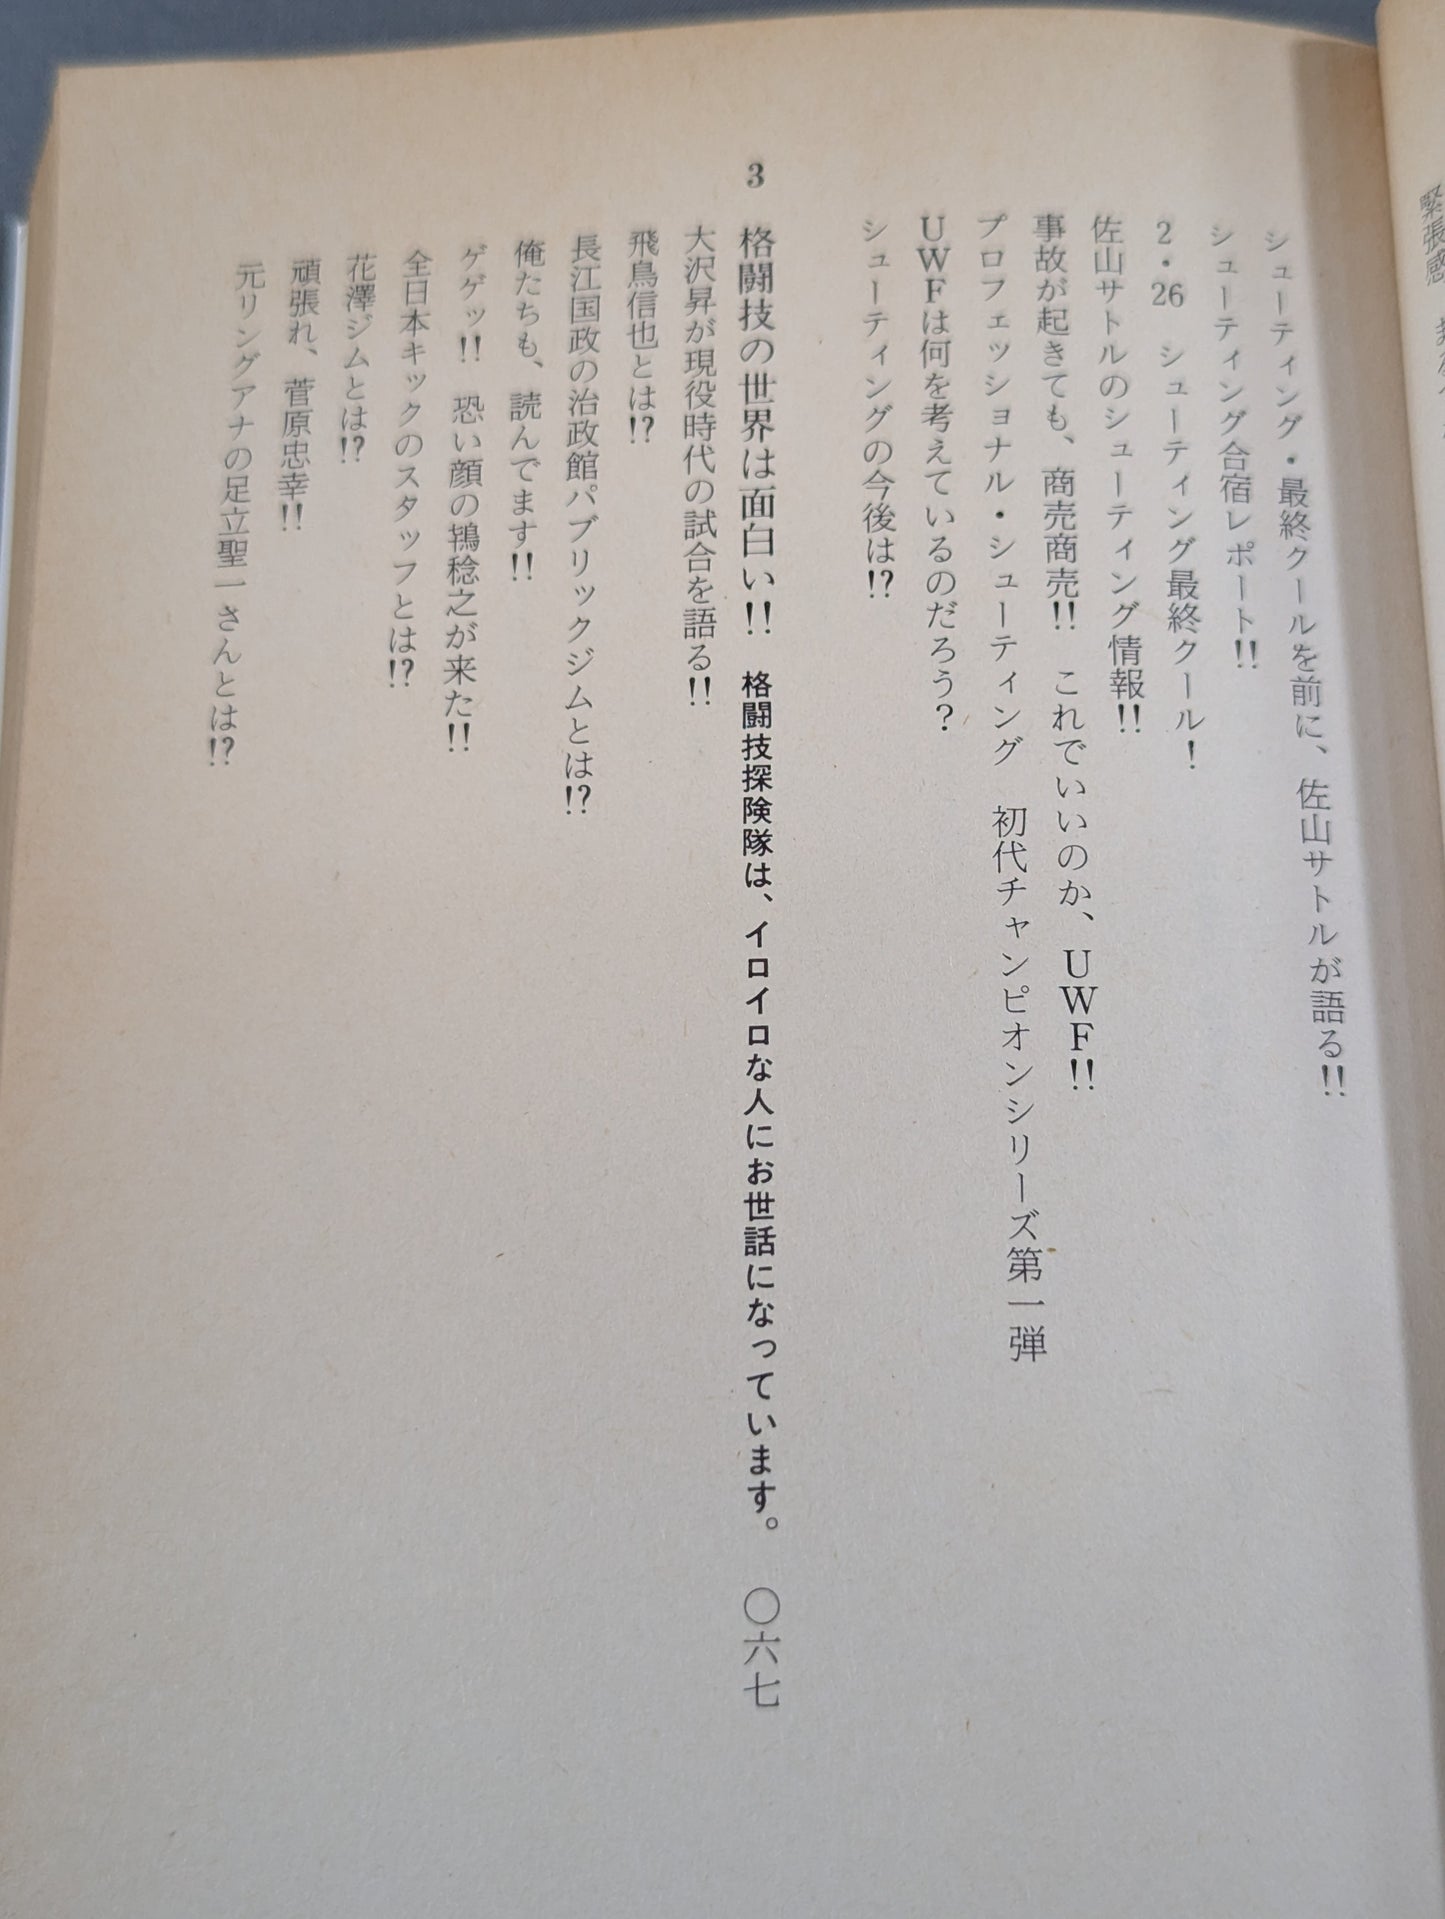 シューティング・最終クールを前に、佐山サトルが語る!!
シューティング合宿レポート!!
2・26　シューティング最終クール！
佐山サトルのシューティング情報!!
事故が起きても、商売商売!!　これでいいのか、UWF!!
プロフェッショナル・シューティング　初代チャンピオンシリーズ第一弾
UWFは何を考えているのだろう？
シューティングの今後は!?
3　格闘技の世界は面白い!!　格闘技探険隊は、イロイロな人にお世話になっています。　〇六七
大沢昇が現役時代の試合を語る!!
飛鳥信也とは!?
長江国政の治政館パブリックジムとは!?
俺たちも、読んでます!!
ゲゲッ!!　恐い顔の鴇稔之が来た!!
全日本キックのスタッフとは!?
花澤ジムとは!?
頑張れ、菅原忠幸!!
元リングアナの足立聖一さんとは!?